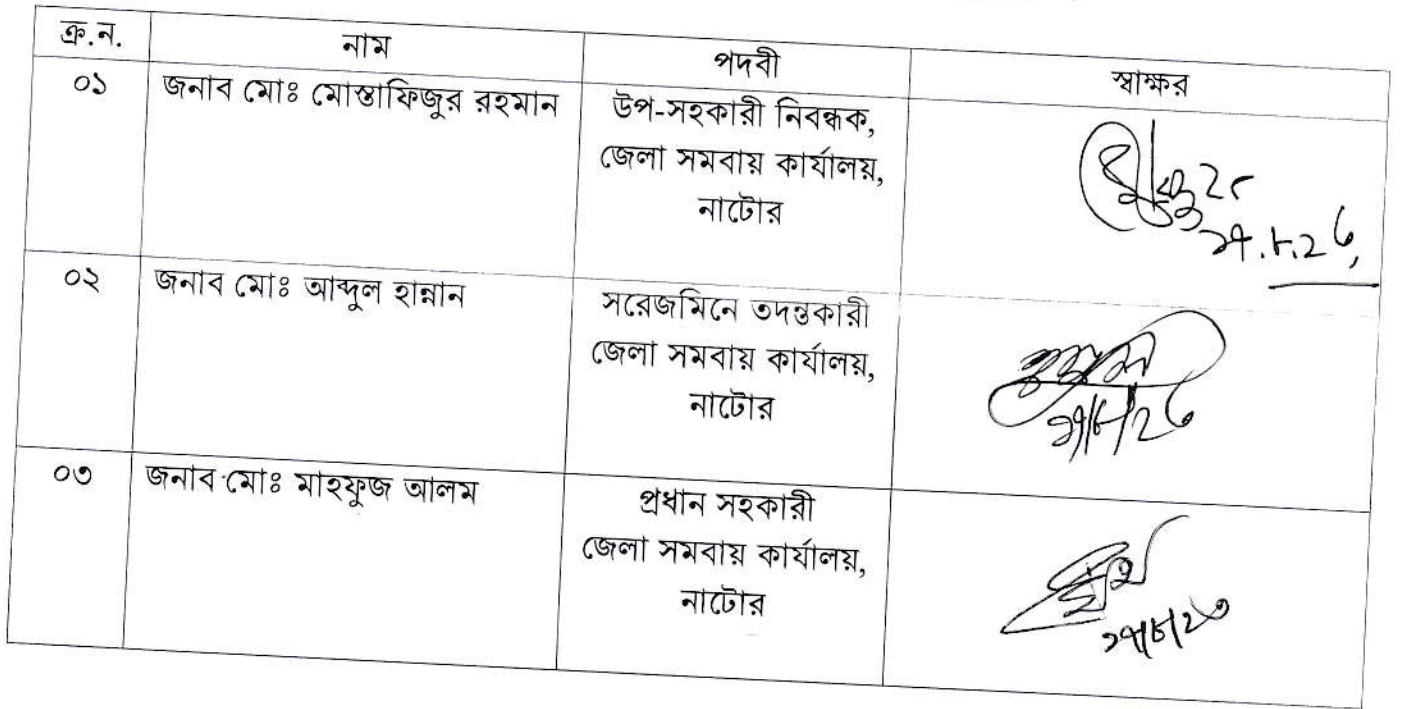 ক্র.ন. নাম পদবী স্বাক্ষর
০১ জনাব মোঃ মোস্তাফিজুর রহমান উপ-সহকারী নিবন্ধক,
জেলা সমবায় কার্যালয়,
নাটোর
০২ জনাব মোঃ আব্দুল হান্নান সরেজমিনে তদন্তকারী
জেলা সমবায় কার্যালয়,
নাটোর
০৩ জনাব মোঃ মাহফুজ আলম প্রধান সহকারী
জেলা সমবায় কার্যালয়,
নাটোর